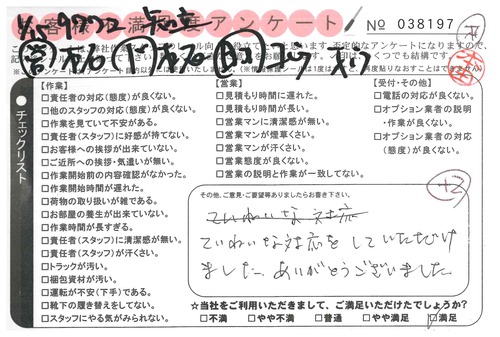 お客様満足度アンケート
No 038197
チェックリスト
【作業】
□責任者の対応(態度)が良くない。
□他のスタッフの対応(態度)が良くない。
□作業を見ていて不安がある。
□責任者(スタッフ)に好感が持てない。
□お客様への挨拶が出来ていない。
□ご近所への挨拶・気遣いが無い。
□作業開始前の内容確認がなかった。
□作業開始時間が遅れた。
□荷物の取り扱いが雑である。
□お部屋の養生が出来ていない。
□作業時間が長すぎる。
□責任者(スタッフ)に清潔感が無い。
□責任者(スタッフ)が汗くさい。
□トラックが汚い。
□梱包資材が汚い。
□運転が不安(下手)である。
□靴下の履き替えをしてない。
□スタッフにやる気がみられない。
【営業】
□見積もり時間に遅れた。
□見積もり時間が長い。
□営業マンに清潔感が無い。
□営業マンが煙草くさい。
□営業マンが汗くさい。
□営業態度が良くない。
□営業の説明と作業が一致してない。
【受付・その他】
□電話の対応が良くない。
□オプション業者の説明
・作業が良くない。
□オプション業者の対応
(態度)が良くない。
その他、ご意見・ご要望等ありましたらお書き下さい。
ていねいな対応
ていねいな対応をしていただけ
ました。ありがとうございました。
☆当社をご利用いただきまして、ご満足いただけたでしょうか?
□不満 □やや不満 □普通 □やや満足 ☑満足